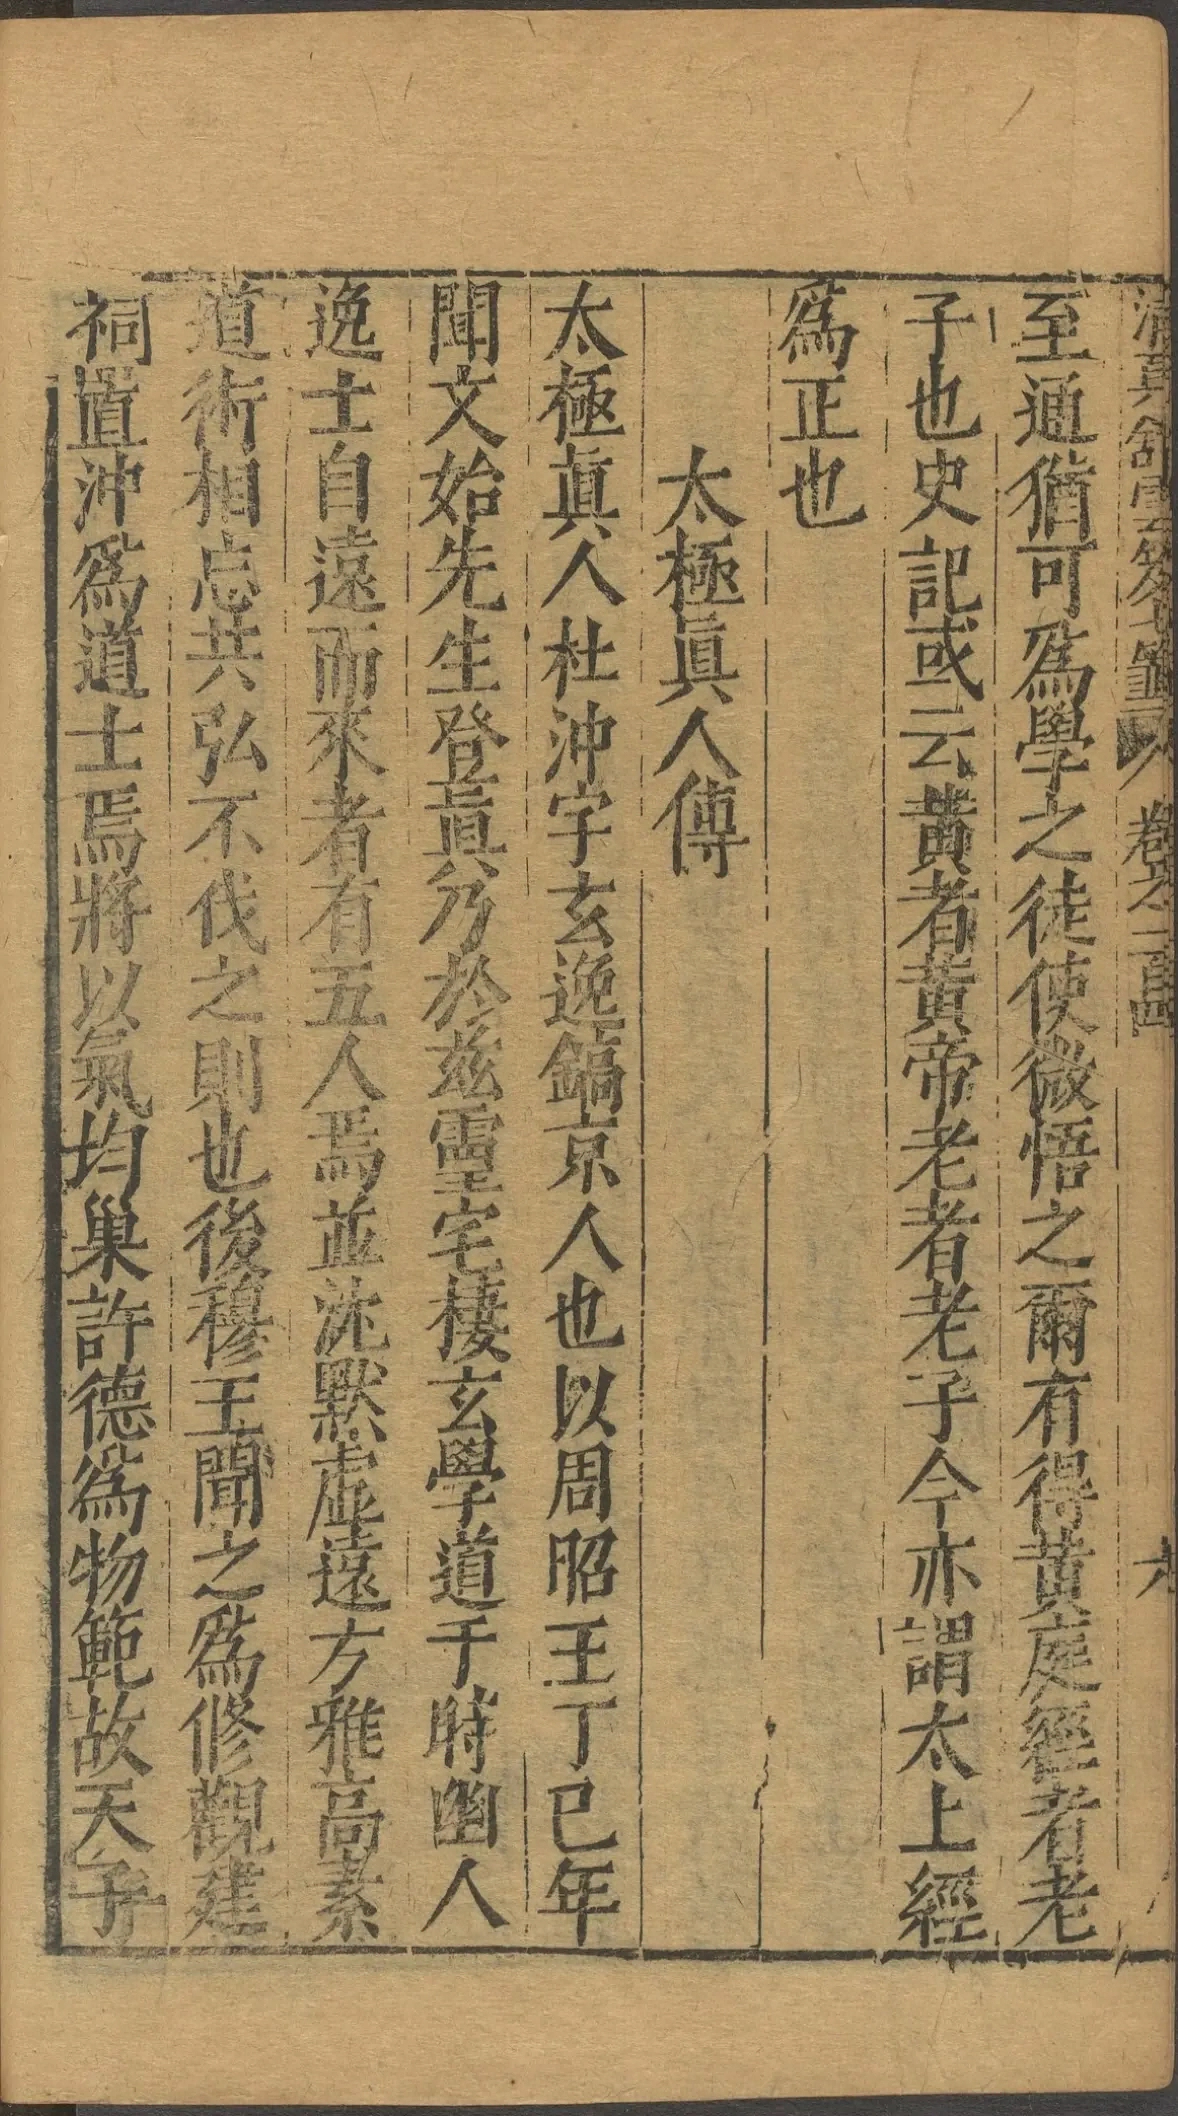 清真館雲笈七籤 卷之一百四 六
至通猶可爲學之徒使微悟之爾有得黃庭經者老
子也史記或云黃者黃帝老者老子今亦謂太上經
爲正也
太極眞人傳
太極眞人杜沖字玄逸鎬京人也以周昭王丁巳年
聞文始先生登眞乃於茲靈宅棲玄學道于時幽人
逸士自遠而來者有五人焉並沈默虛遠方雅高素
道術相忘共弘不伐之則也後穆王聞之爲修觀建
祠置沖爲道士焉將以氣均巢許德爲物範故天子